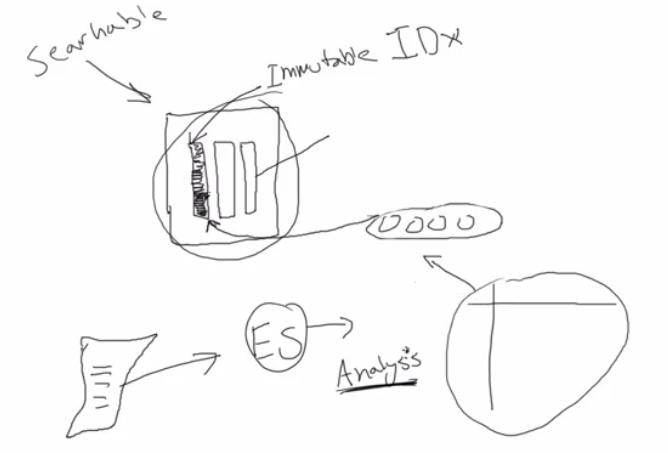 Searhable
Immutable IDx
ES
Analysis